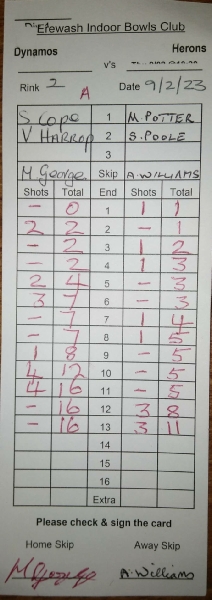 Erewash Indoor Bowls Club
Dynamos Herons
v's
Rink 2 A Date 9/2/23
S Cope 1 M. POTTER
V HARROP 2 S. POOLE
3
M George Skip A. WILLIAMS
Shots Total End Shots Total
- 0 1 1 1
2 2 2 - 1
- 2 3 1 2
- 2 4 1 3
2 4 5 - 3
3 7 6 - 3
- 7 7 1 4
- 7 8 1 5
1 8 9 - 5
4 12 10 - 5
4 16 11 - 5
- 16 12 3 8
- 16 13 3 11
14
15
16
Extra
Please check & sign the card
Home Skip Away Skip
M George A. Williams